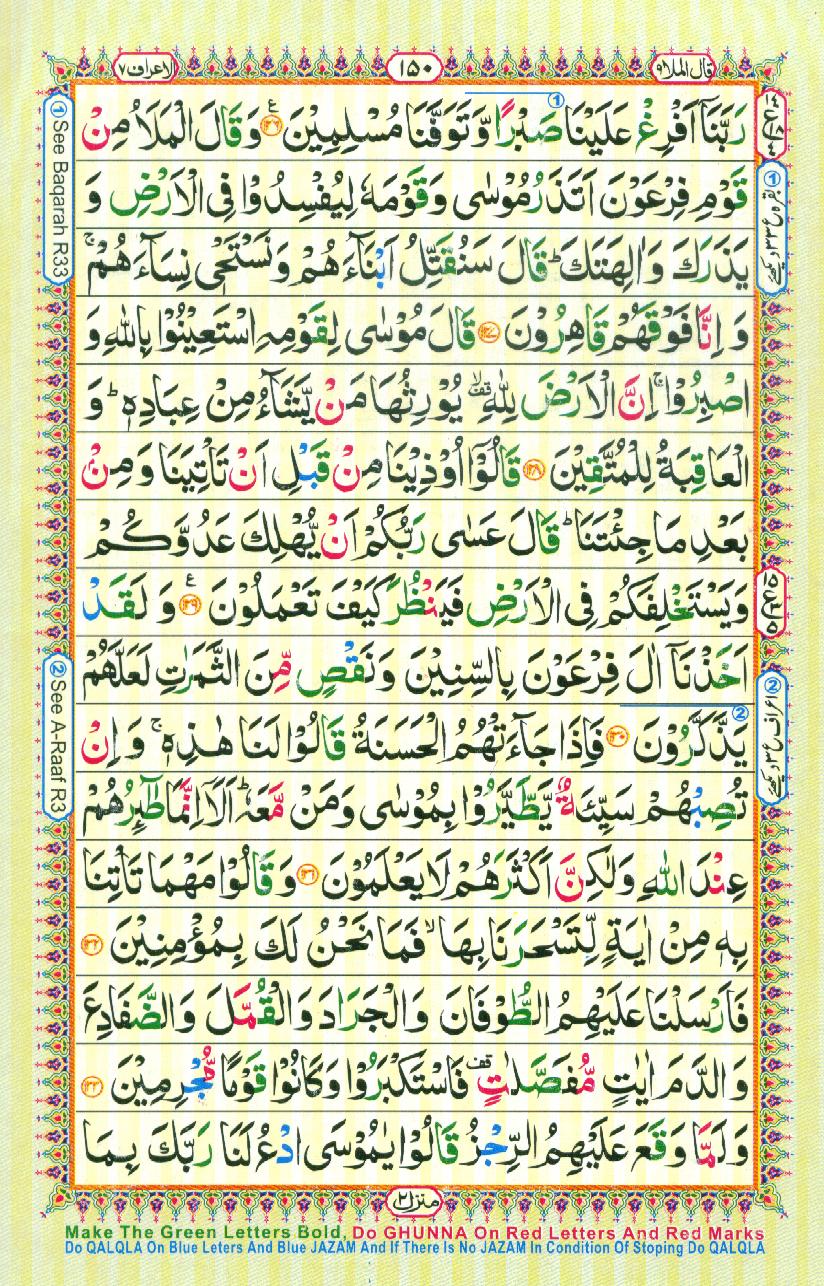 قال الملا ٩
١٥٠
الاعراف ٧
رَبَّنَاۤ اَفْرِغْ عَلَيْنَا صَبْرًا وَّ تَوَفَّنَا مُسْلِمِيْنَ ﴿۱۲۶﴾ وَ قَالَ الْمَلَاُ مِنْ
قَوْمِ فِرْعَوْنَ اَتَذَرُ مُوْسٰى وَ قَوْمَهٗ لِيُفْسِدُوْا فِى الْاَرْضِ وَ
يَذَرَكَ وَ اٰلِهَتَكَ ؕ قَالَ سَنُقَتِّلُ اَبْنَآءَهُمْ وَ نَسْتَحْىٖ نِسَآءَهُمْ ۚ
وَ اِنَّا فَوْقَهُمْ قَاهِرُوْنَ ﴿۱۲۷﴾ قَالَ مُوْسٰى لِقَوْمِهِ اسْتَعِيْنُوْا بِاللّٰهِ وَ
اصْبِرُوْا ۚ اِنَّ الْاَرْضَ لِلّٰهِ ۙ۫ يُوْرِثُهَا مَنْ يَّشَآءُ مِنْ عِبَادِهٖ ؕ وَ
الْعَاقِبَةُ لِلْمُتَّقِيْنَ ﴿۱۲۸﴾ قَالُوْۤا اُوْذِيْنَا مِنْ قَبْلِ اَنْ تَاْتِيَنَا وَ مِنْۢ
بَعْدِ مَا جِئْتَنَا ؕ قَالَ عَسٰى رَبُّكُمْ اَنْ يُّهْلِكَ عَدُوَّكُمْ
وَ يَسْتَخْلِفَكُمْ فِى الْاَرْضِ فَيَنْظُرَ كَيْفَ تَعْمَلُوْنَ ﴿۱۲۹﴾ وَ لَقَدْ
اَخَذْنَاۤ اٰلَ فِرْعَوْنَ بِالسِّنِيْنَ وَ نَقْصٍ مِّنَ الثَّمَرٰتِ لَعَلَّهُمْ
يَذَّكَّرُوْنَ ﴿۱۳۰﴾ فَاِذَا جَآءَتْهُمُ الْحَسَنَةُ قَالُوْا لَنَا هٰذِهٖ ۚ وَ اِنْ
تُصِبْهُمْ سَيِّئَةٌ يَّطَّيَّرُوْا بِمُوْسٰى وَ مَنْ مَّعَهٗ ؕ اَلَاۤ اِنَّمَا طٰٓئِرُهُمْ
عِنْدَ اللّٰهِ وَلٰكِنَّ اَكْثَرَهُمْ لَا يَعْلَمُوْنَ ﴿۱۳۱﴾ وَ قَالُوْا مَهْمَا تَاْتِنَا
بِهٖ مِنْ اٰيَةٍ لِّتَسْحَرَنَا بِهَا ۙ فَمَا نَحْنُ لَكَ بِمُؤْمِنِيْنَ ﴿۱۳۲﴾
فَاَرْسَلْنَا عَلَيْهِمُ الطُّوْفَانَ وَ الْجَرَادَ وَ الْقُمَّلَ وَ الضَّفَادِعَ
وَ الدَّمَ اٰيٰتٍ مُّفَصَّلٰتٍ ۫ فَاسْتَكْبَرُوْا وَ كَانُوْا قَوْمًا مُّجْرِمِيْنَ ﴿۱۳۳﴾
وَ لَمَّا وَقَعَ عَلَيْهِمُ الرِّجْزُ قَالُوْا يٰمُوْسَى ادْعُ لَنَا رَبَّكَ بِمَا
منزل ٢
1 See Baqarah R33
2 See A-Raaf R3
Make The Green Letters Bold, Do GHUNNA On Red Letters And Red Marks
Do QALQLA On Blue Leters And Blue JAZAM And If There Is No JAZAM In Condition Of Stoping Do QALQLA